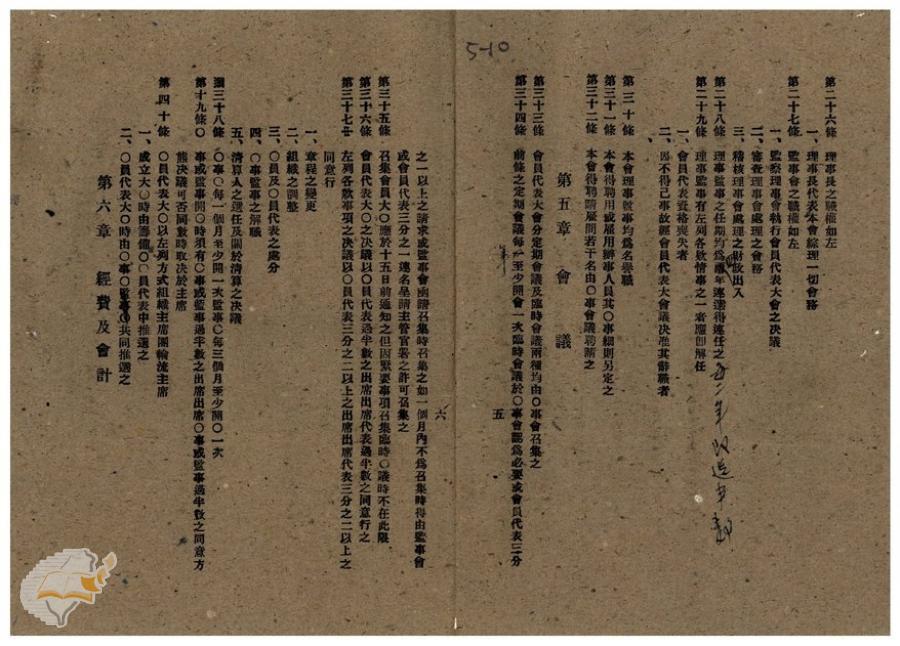 5-10
第二十六條　理事長之職權如左
一、理事長代表本會綜理一切會務
第二十七條　監事會之職權如左
一、監察理事會執行會員代表大會之決議
二、審查理事會處理之會務
三、稽核理事會處理之財政出入
第二十八條　理事監事之任期均為年連選得連任之
第二十九條　理事監事有左列各欵情事之一者應卽解任
一、會員代表資格喪失者
二、因不得已事故經會員代表大會議決准其辭職者
第三十條　本會理事監事均為名譽職
第三十一條　本會得聘用或雇用辦事人員其〇事細則另定之
第三十二條　本會得聘請顧問若干名由〇事會議聘請之
第五章　會　議
第三十三條　會員代表大會分定期會議及臨時會議兩種均由〇事會召集之
第三十四條　前條之定期會議每年至少開會一次臨時會議於〇事會認為必要或會員代表三分
五
六
之一以上之請求或監事會函請召集時召集之如一個月內不為召集時得由監事會
或會員代表三分之一連名呈請主管官署之許可召集之
第三十五條　召集會員大〇應於十五日前通知之但因緊要事項召集臨時〇議時不在此限
第三十六條　會員代表大〇之決議以〇員代表過半數之出席出席代表過半數之同意行之
第三十七　左列各欵事項之決議以〇員代表三分之二以上之出席出席代表三分之二以上之
同意行之
一、章程之變更
二、組織之調整
三、〇員及〇員代表之處分
四、〇事監事之解職
五、清算人之選任及關於清算之決議
三十八條　〇事〇每一個月至少開一次監事〇每三個月至少開〇一次
第十九條〇　事或監事開〇時須有〇事或監事過半數之出席出席〇事或監事過半數之同意方
能決議可否同數時取決於主席
第四十條　〇員代表大〇以左列方式組織主席團輪流主席
一、成立大〇時由籌備〇〇員代表中推選之
二、〇員代表大〇時由〇事〇監事〇共同推選之
第六章　經費及會計